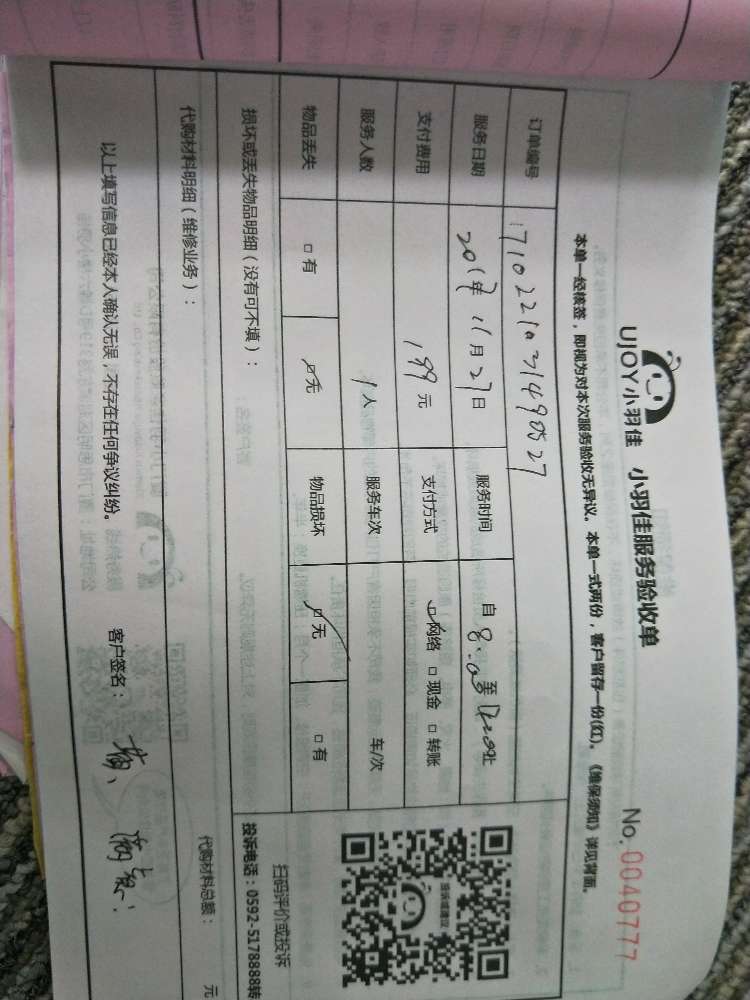 UJOY小羽佳 小羽佳服务验收单 No. 0040777
本单一经核签，即视为对本次服务验收无异议。本单一式两份，客户留存一份(红)。《维保须知》详见背面。
订单编号 17102210714990527
服务日期 2017年11月27日 服务时间 自8:00至
支付费用 199元 支付方式 □网络 □现金 □转账
服务人数 1人 服务车次 车/次
物品丢失 □有 □无 物品损坏 □无 □有
损坏或丢失物品明细（没有可不填）：
扫码评价或投诉
投诉电话：0592-5178888转
代购材料明细（维修业务）：
代购材料总额： 元
以上填写信息已经本人确认无误，不存在任何争议纠纷。 客户签名：